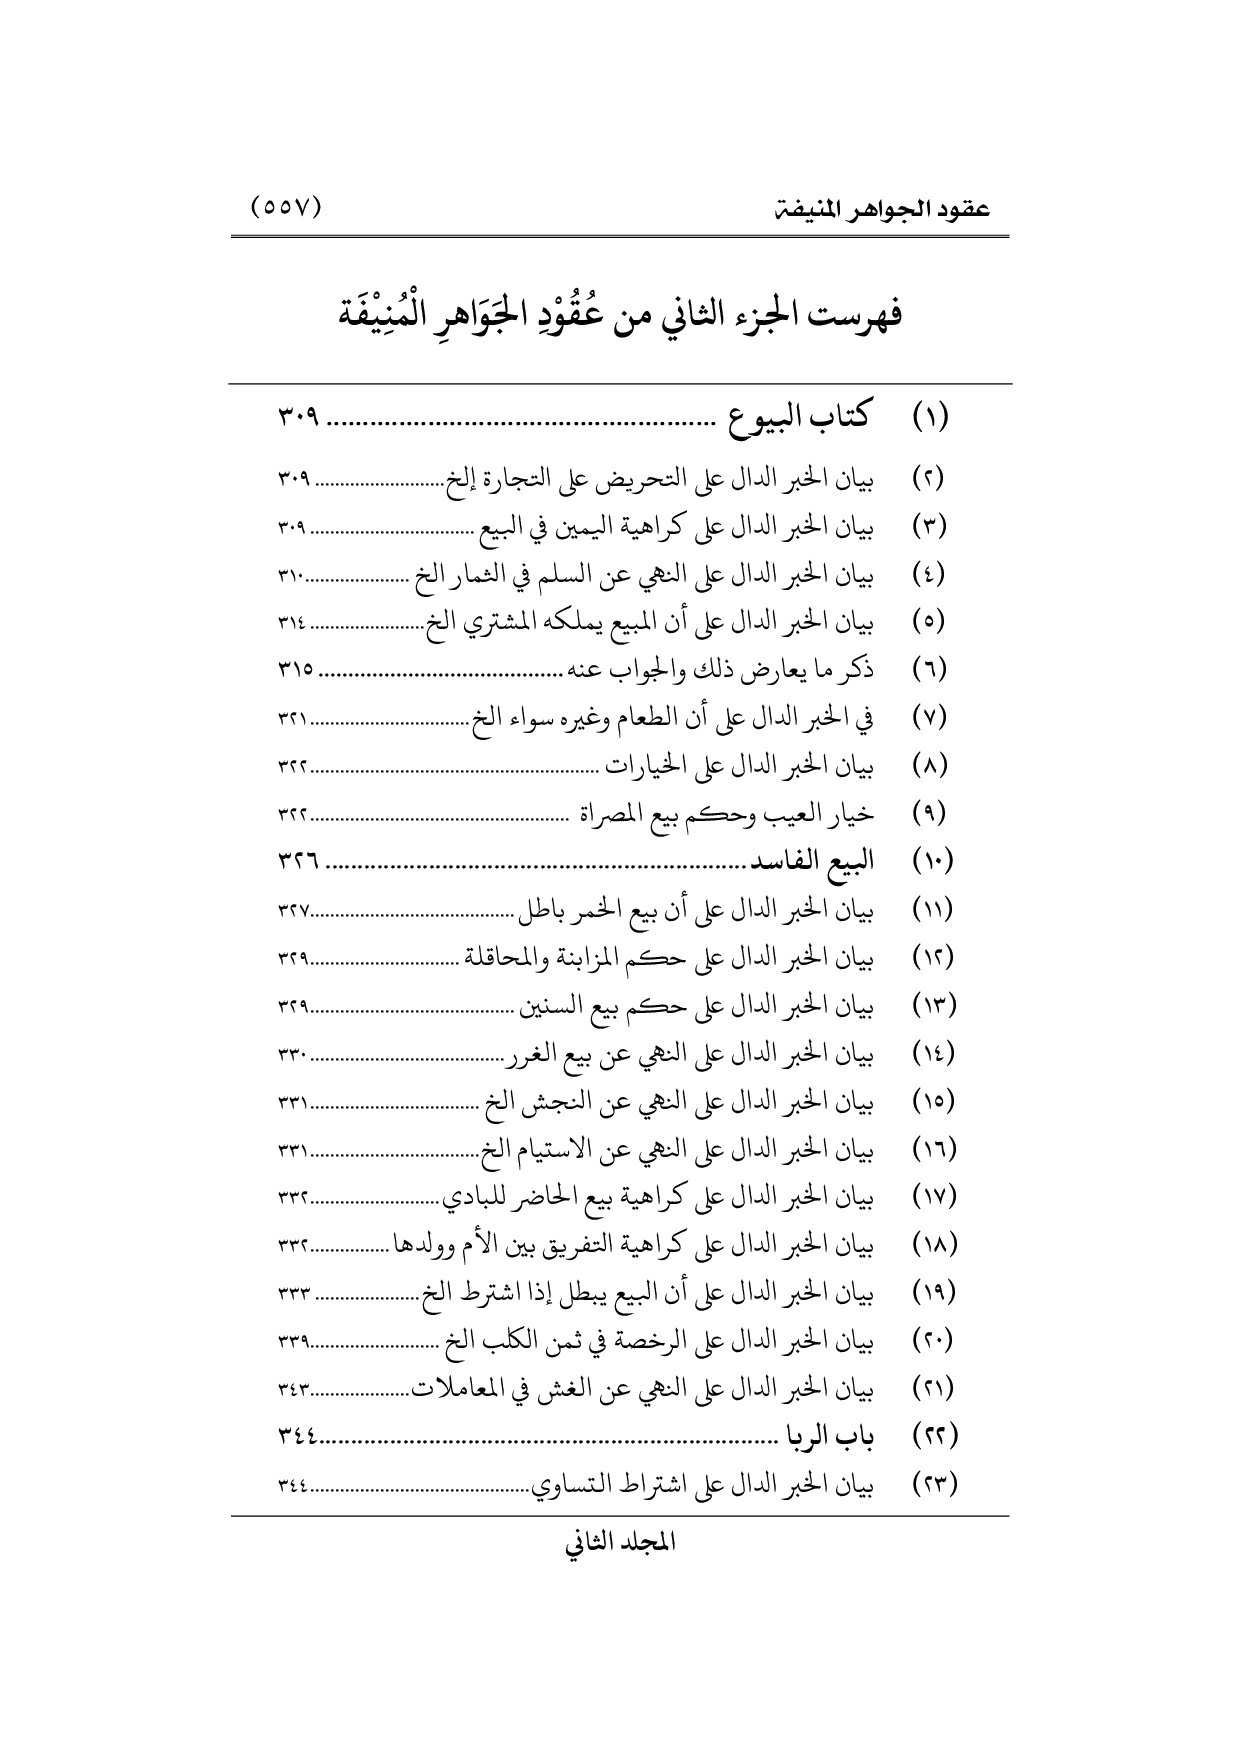 عقود الجواهر المنيفة (٥٥٧)
فهرست الجزء الثاني من عُقُوْدِ الجَوَاهرِ الْمُنِيْفَة
(١) كتاب البيوع ..................................................... ٣٠٩
(٢) بيان الخبر الدال على التحريض على التجارة إلخ.......................... ٣٠٩
(٣) بيان الخبر الدال على كراهية اليمين في البيع ................................. ٣٠٩
(٤) بيان الخبر الدال على النهي عن السلم في الثمار الخ .....................٣١٠
(٥) بيان الخبر الدال على أن المبيع يملكه المشتري الخ....................... ٣١٤
(٦) ذكر ما يعارض ذلك والجواب عنه......................................... ٣١٥
(٧) في الخبر الدال على أن الطعام وغيره سواء الخ................................٣٢١
(٨) بيان الخبر الدال على الخيارات ..........................................................٣٢٢
(٩) خيار العيب وحكم بيع المصراة ....................................................٣٢٢
(١٠) البيع الفاسد................................................................. ٣٢٦
(١١) بيان الخبر الدال على أن بيع الخمر باطل.........................................٣٢٧
(١٢) بيان الخبر الدال على حكم المزابنة والمحاقلة ..............................٣٢٩
(١٣) بيان الخبر الدال على حكم بيع السنين .........................................٣٢٩
(١٤) بيان الخبر الدال على النهي عن بيع الغرر.......................................٣٣٠
(١٥) بيان الخبر الدال على النهي عن النجش الخ ..................................٣٣١
(١٦) بيان الخبر الدال على النهي عن الاستيام الخ..................................٣٣١
(١٧) بيان الخبر الدال على كراهية بيع الحاضر للبادي..........................٣٣٢
(١٨) بيان الخبر الدال على كراهية التفريق بين الأم وولدها................٣٣٢
(١٩) بيان الخبر الدال على أن البيع يبطل إذا اشترط الخ..................... ٣٣٣
(٢٠) بيان الخبر الدال على الرخصة في ثمن الكلب الخ ..........................٣٣٩
(٢١) بيان الخبر الدال على النهي عن الغش في المعاملات....................٣٤٣
(٢٢) باب الربا .......................................................................٣٤٤
(٢٣) بيان الخبر الدال على اشتراط التساوي............................................٣٤٤
المجلد الثاني